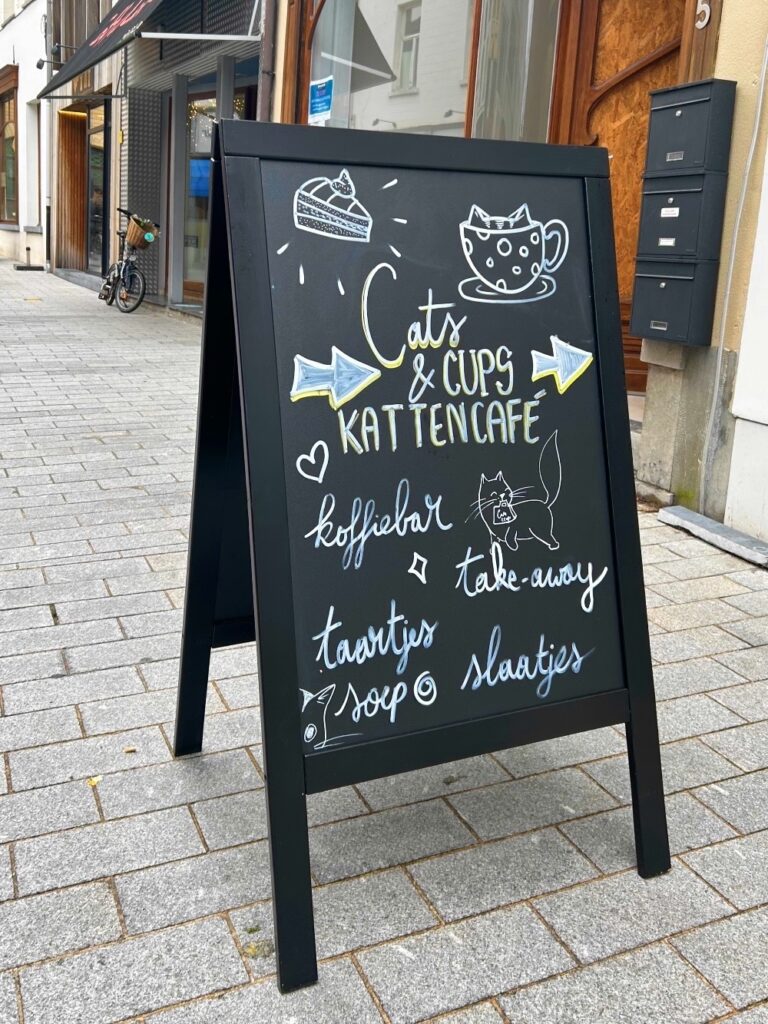 Cats
& CUPS
KATTENCAFÉ
koffiebar
take-away
taartjes
soep
slaatjes
5